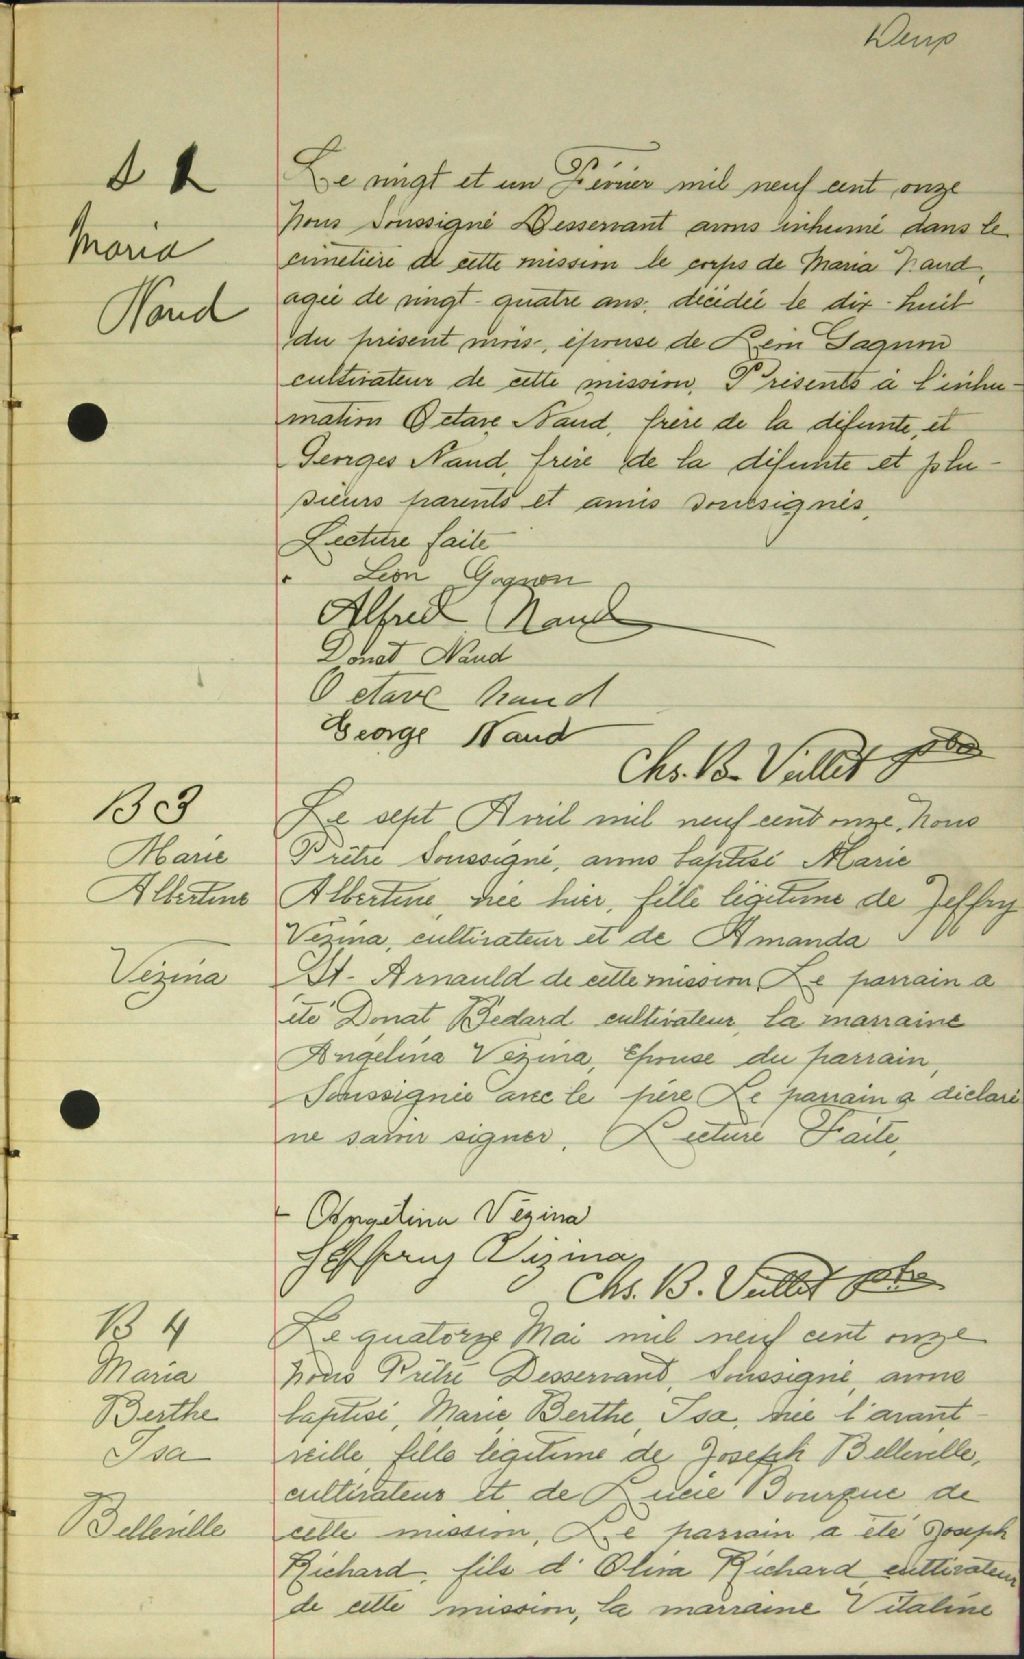 Deux
S 2
Maria
Naud
Le vingt et un Février mil neuf cent onze
Nous Soussigné Desservant avons inhumé dans le
cimetière de cette mission le corps de Maria Naud,
agée de vingt-quatre ans, décédée le dix-huit
du présent mois, épouse de Léon Gagnon
cultivateur de cette mission. Présents à l'inhu-
mation Octave Naud, frère de la défunte, et
Georges Naud, frère de la défunte et plu-
sieurs parents et amis soussignés.
Lecture faite
Léon Gagnon
Alfred Naud
Donat Naud
Octave Naud
George Naud
Chs. B. Veillet ptre
B 3
Marie
Albertine
Vézina
Le sept Avril mil neuf cent onze, Nous
Prêtre Soussigné, avons baptisé Marie
Albertine, née hier, fille légitime de Jeffry
Vézina, cultivateur et de Amanda
St-Arnauld de cette mission. Le parrain a
été Donat Bédard cultivateur, la marraine
Angélina Vézina, Epouse du parrain,
Soussignée avec le père Le parrain a déclaré
ne savoir signer. Lecture Faite,
Angélina Vézina
Jefferey Vizina
Chs. B. Veillet ptre
B 4
Maria
Berthe
Isa
Belleville
Le quatorze Mai mil neuf cent onze
Nous Prêtre Desservant, Soussigné, avons
baptisé, Marie, Berthe, Isa, née l'avant-
veille, fille légitime de Joseph Belleville,
cultivateur et de Lucie Bourque de
cette mission, Le parrain a été Joseph
Richard, fils d'Oliva Richard, cultivateur
de cette mission, la marraine Vitaline